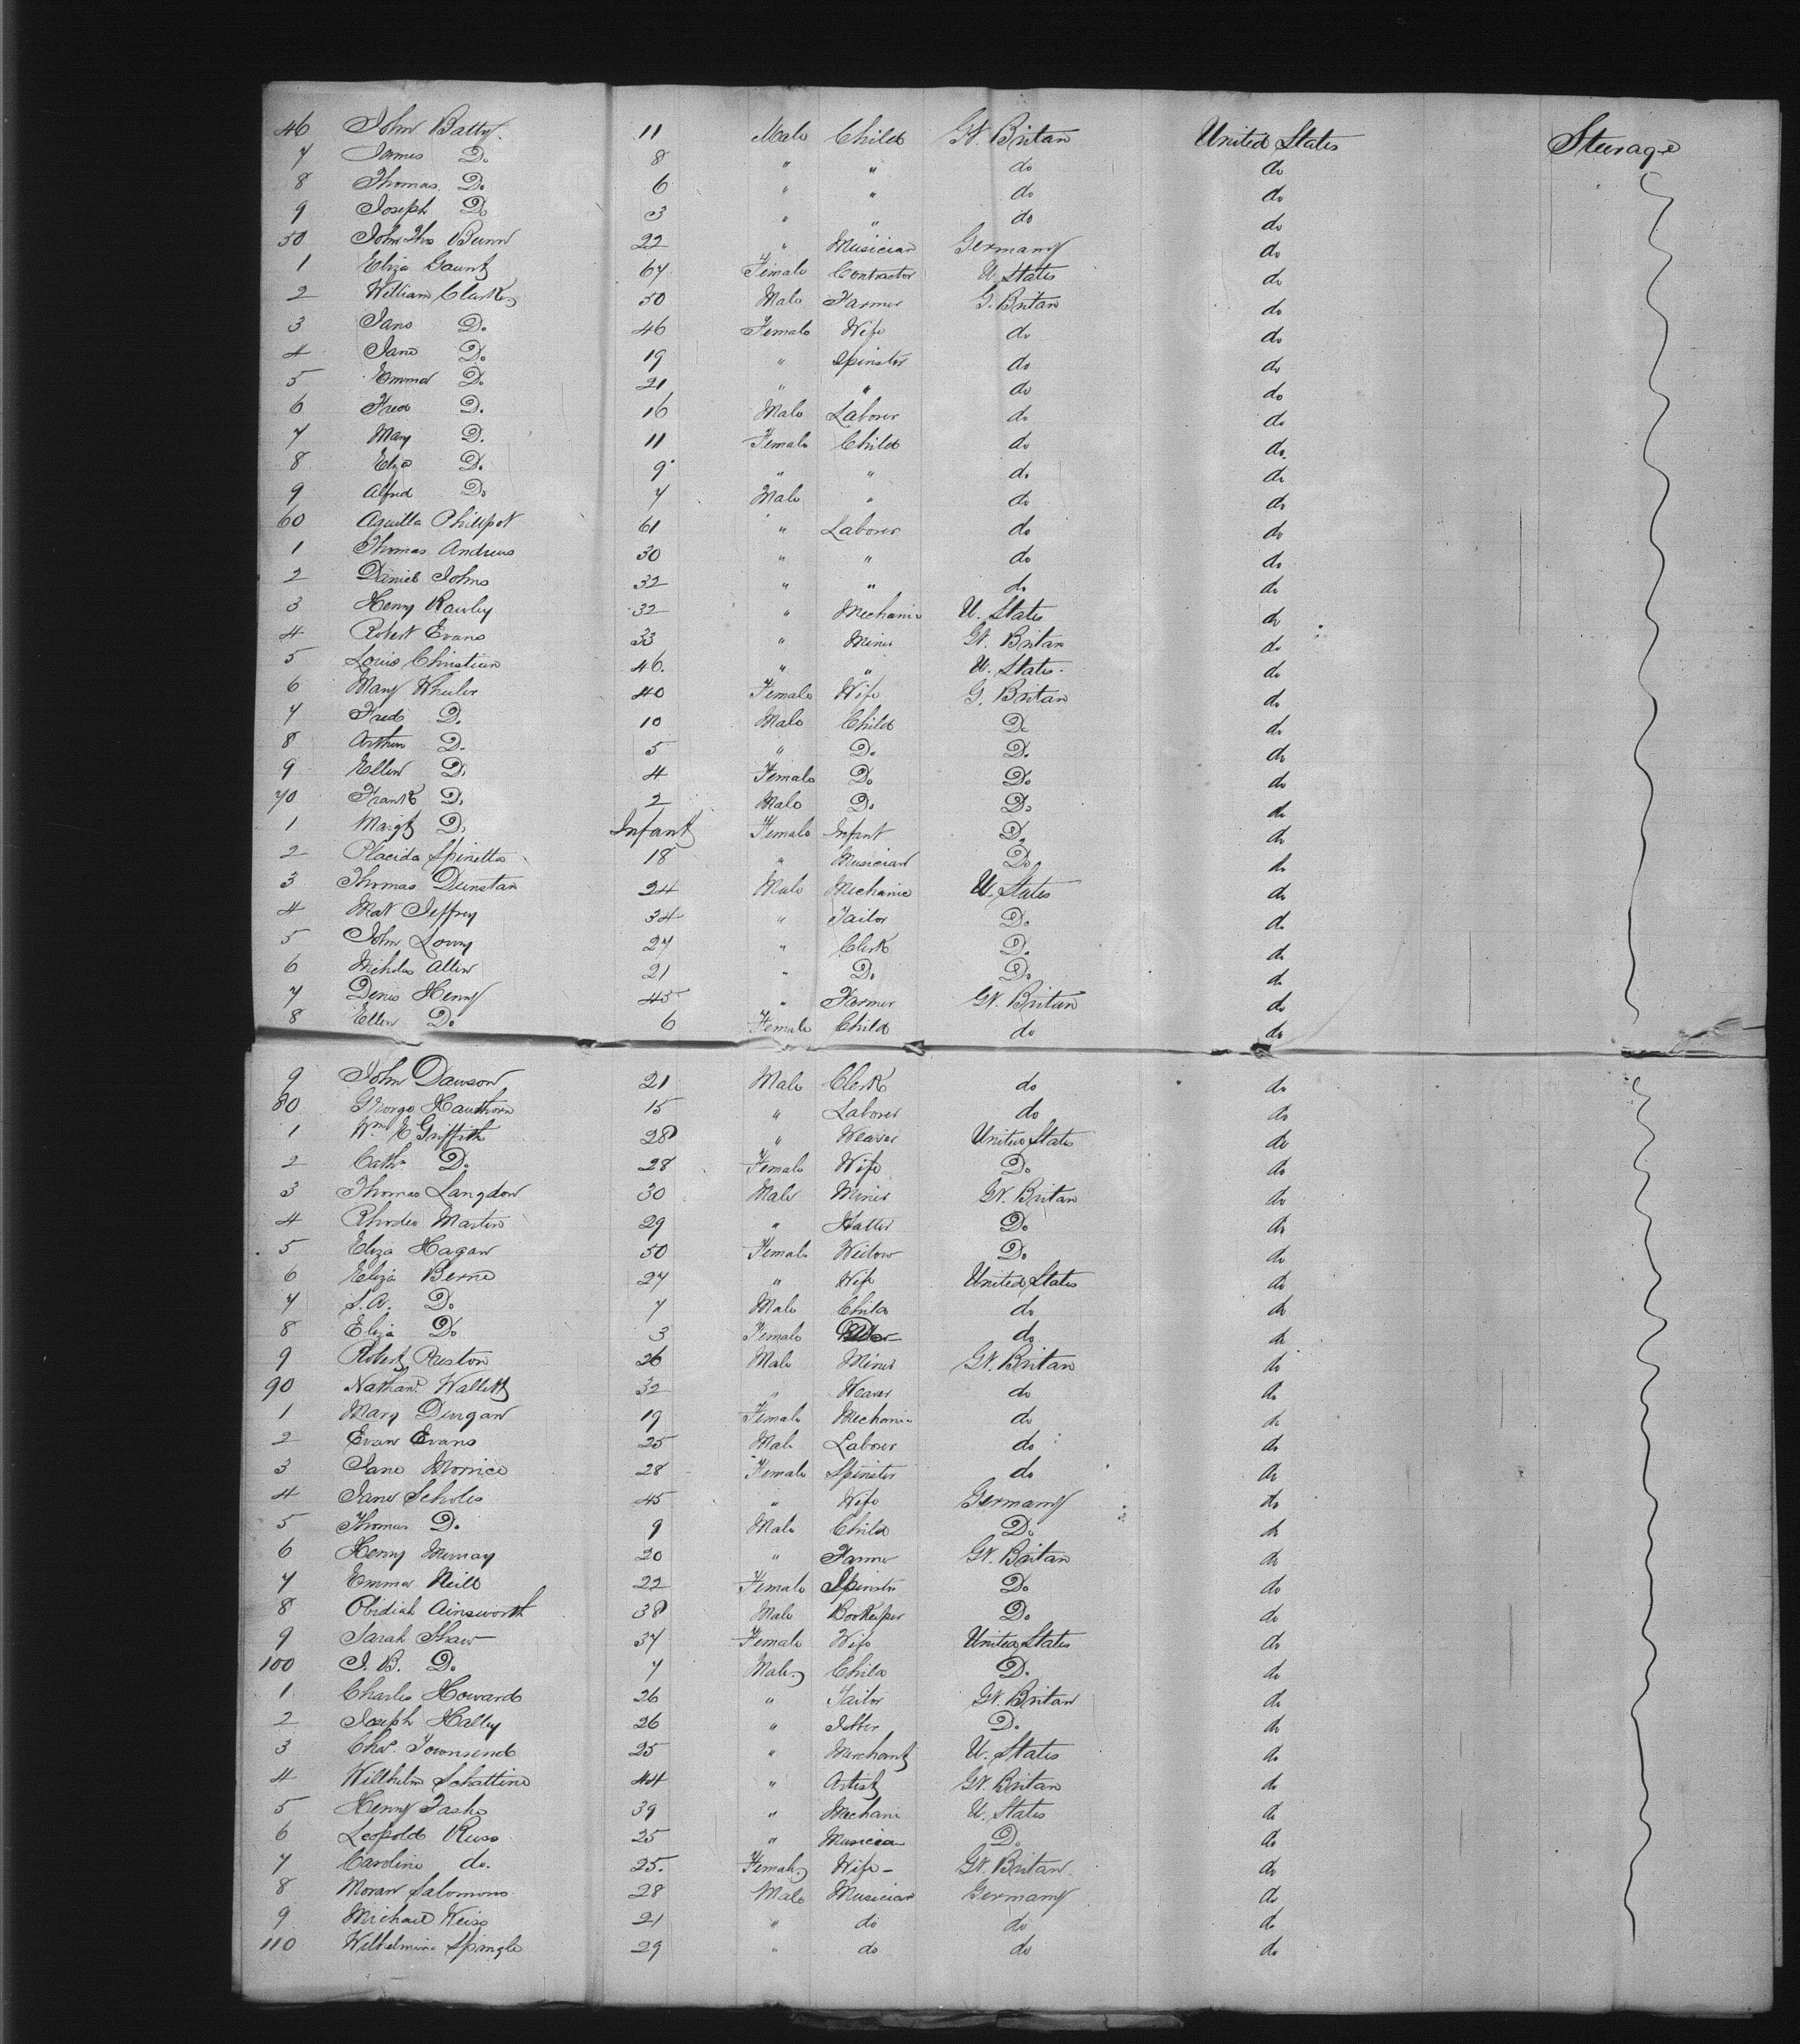 46 John Batty. 11 Male Child Gt. Britan United States Steerage
7 James Do 8 " " do do
8 Thomas. Do 6 " " do do
9 Joseph Do 3 " " do do
50 John Ths Bunn 22 " Musician Germany do
1 Eliza Gaunt 67 Female Contractor U. States do
2 William Clark 50 Male Farmer G. Britan do
3 Jane Do 46 Female Wife do do
4 Jane Do 19 " Spinster do do
5 Emma Do 21 " " do do
6 Fred Do 16 Male Laborer do do
7 Mary Do 11 Female Child do do
8 Eliza Do 9 " " do do
9 Alfred Do 7 Male " do do
60 Aquilla Philpot 61 " Laborer do do
1 Thomas Andrews 30 " " do do
2 Daniel Johns 32 " " do do
3 Henry Rawley 32 " Mechanic U. States do
4 Robert Evans 33 " Miner Gt. Britan do
5 Louis Christian 46. " " U. States. do
6 Mary Wheeler 40 Female Wife G. Britan do
7 Fred Do 10 Male Child Do do
8 Arthur Do 5 " Do Do do
9 Ellen Do 4 Female Do Do do
70 Frank Do 2 Male Do Do do
1 Margt Do Infant Female Infant Do do
2 Placida Spinetta 18 " Musician Do do
3 Thomas Dunstan 24 Male Mechanic U. States do
4 Mat Jeffrey 34 " Tailor Do do
5 John Lowry 27 " Clerk Do do
6 Nicholas Allen 21 " Do Do do
7 Denis Henry 45 " Farmer Gt. Britan do
8 Ellen Do 6 Female Child do do
9 John Dawson 21 Male Clerk do do
80 George Hawthorn 15 " Laborer do do
1 Wm E Griffith 28 " Weaver United States do
2 Cathn Do 28 Female Wife Do do
3 Thomas Langdon 30 Male Miner Gt. Britan do
4 Rhodes Martin 29 " Hatter Do do
5 Eliza Hagan 50 Female Widow Do do
6 Eliza Berne 27 " Wife United States do
7 S. A. Do 7 Male Child do do
8 Eliza Do 3 Female Do do do
9 Robert Preston 26 Male Miner Gt. Britan do
90 Nathanl Wallett 32 " Weaver do do
1 Mary Durgan 19 Female Mechanic do do
2 Evan Evans 25 Male Laborer do do
3 Jane Morrice 28 Female Spinster do do
4 Jane Scholes 45 " Wife Germany do
5 Thomas Do 9 Male Child Do do
6 Henry Murray 20 " Farmer Gt. Britan do
7 Emma Neill 22 Female Spinster Do do
8 Obidiah Ainsworth 38 Male Bookeeper Do do
9 Sarah Shaw 37 Female Wife United States do
100 J. B. Do 7 Male Child Do do
1 Charles Howard 26 " Tailor Gt. Britan do
2 Joseph Halley 26 " Do do
3 Chas. Townsend 25 " Merchant U. States do
4 Willhelm Schattine 44 " Artist Gt. Britan do
5 Henry Tasho 39 " Mechani U. States do
6 Leopold Russ 25 " Musician Do do
7 Caroline do. 25. Female Wife Gt. Britan. do
8 Moran Salomons 28 Male Musician Germany do
9 Michael Weiss 21 " do do do
110 Wilhelmine Spingle 29 " do do do